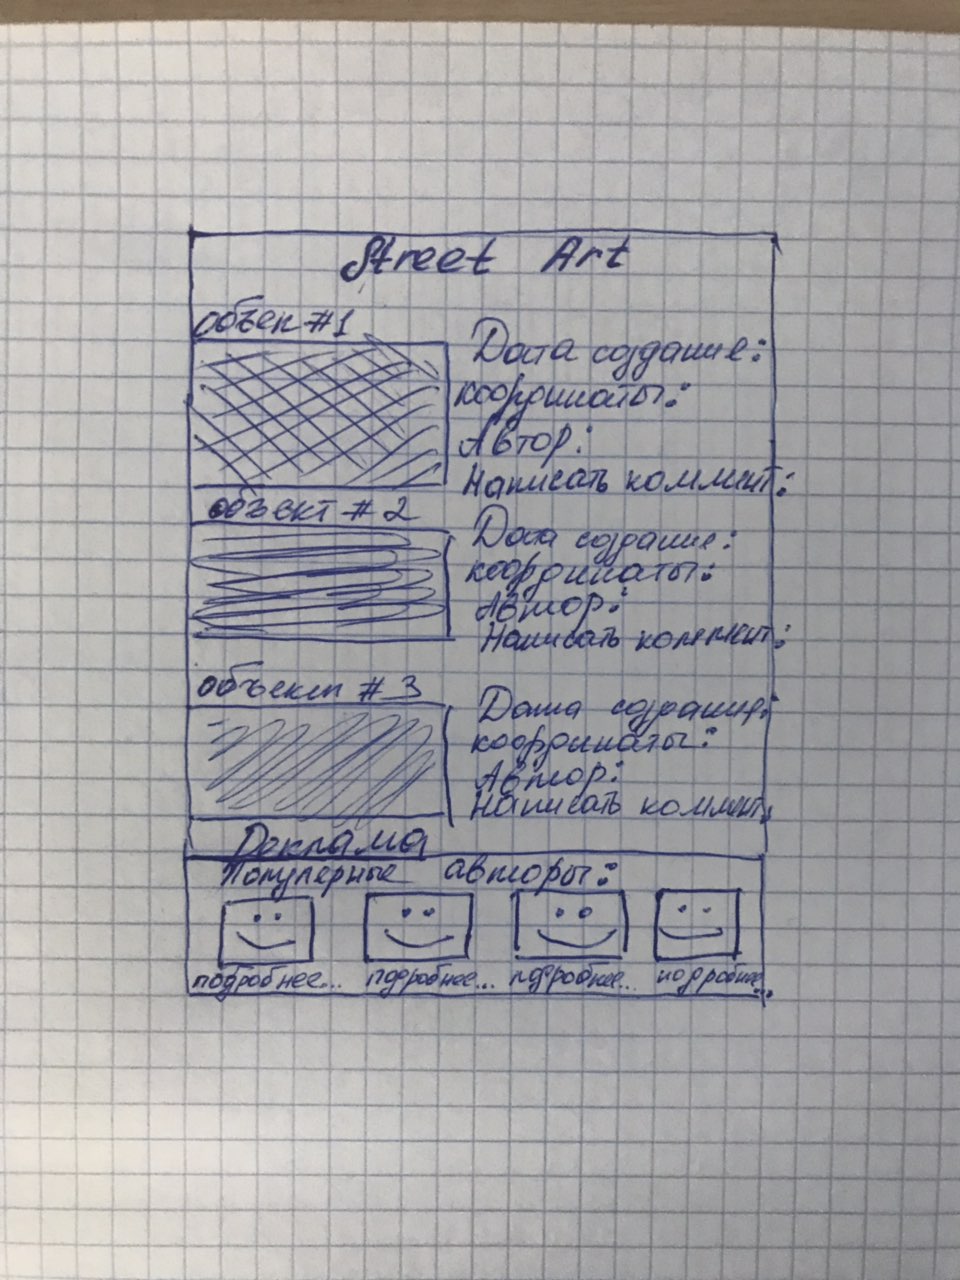 Street Art
объек #1
Дата создание:
координаты:
Автор:
Написать коммент:
объект #2
Дата создание:
координаты:
Автор:
Написать коммент:
объект #3
Дата создание:
координаты:
Автор:
Написать коммент:
Реклама
Популерные авторы:
подробнее... подробнее... подробнее... подробнее...